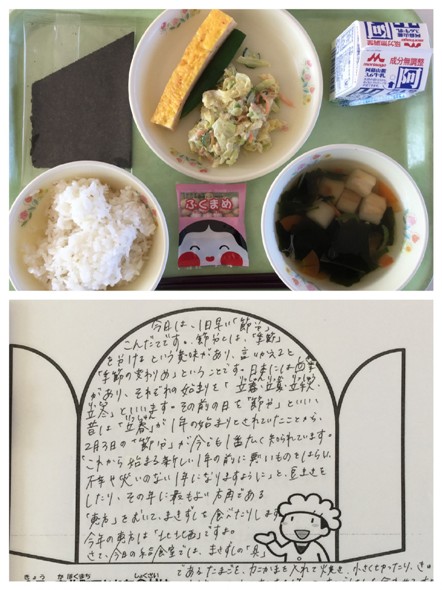 成分無調整
ふくまめ
今日は、1日早い「節分」
こんだてです。節分とは、「季節」
を分けるという意味があり、言いかえると
「季節の変わりめ」ということです。日本には四季
があり、それぞれの始まりを「立春・立夏・立秋・
立冬」といいます。その前の日を「節分」といい、
昔は「立春」が1年の始まりとされていたことから、
2月3日の「節分」が今でも1番広く知られています。
「これから始まる新しい1年の前に悪いものをはらい、
不幸や災いのない1年になりますように」と、豆まきを
したり、その年に最もよい方角である
「恵方」をむいて、まきずしを食べたりします
今年の恵方は「北北西」ですよ。
さて、今日の給食室では、まきずしの「具」
であるたまごを、カニカマを入れて焼き、小さく